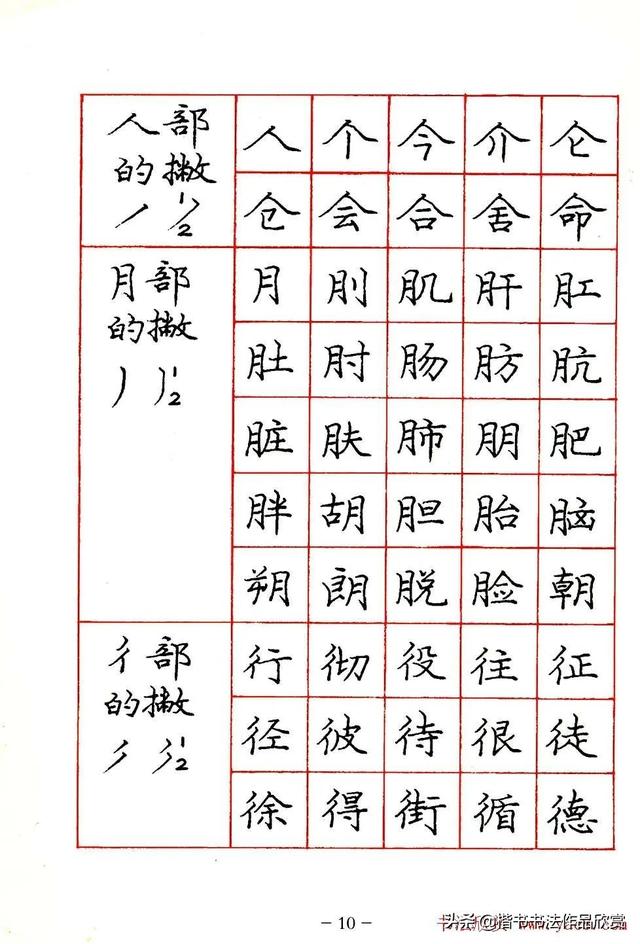 人部
的撇
丿 ½
人 个 今 介 仑
仓 会 合 舍 命
月部
的撇
丿 丿½
月 刖 肌 肝 肛
肚 肘 肠 肪 肮
脏 肤 肺 朋 肥
胖 胡 胆 胎 脑
朔 朗 脱 脸 朝
彳部
的撇
½
行 彻 役 往 征
径 彼 待 很 徒
徐 得 街 循 德
- 10 -
头条@楷书书法作品欣赏